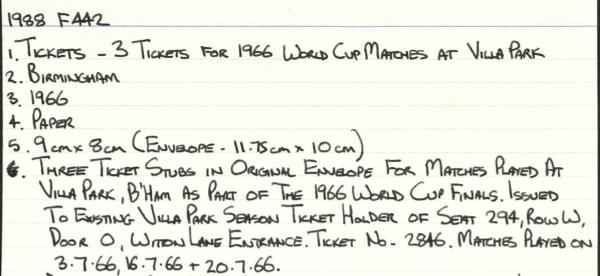 1988 F442
1. TICKETS - 3 TICKETS FOR 1966 WORLD CUP MATCHES AT VILLA PARK
2. BIRMINGHAM
3. 1966
4. PAPER
5. 9cm x 8cm (ENVELOPE - 11.75cm x 10cm)
6. THREE TICKET STUBS IN ORIGINAL ENVELOPE FOR MATCHES PLAYED AT
VILLA PARK, B'HAM AS PART OF THE 1966 WORLD CUP FINALS. ISSUED
TO EXISTING VILLA PARK SEASON TICKET HOLDER OF SEAT 294, ROW W,
DOOR O, WITTON LANE ENTRANCE. TICKET No - 2846. MATCHES PLAYED ON
3.7.66, 16.7.66 + 20.7.66.